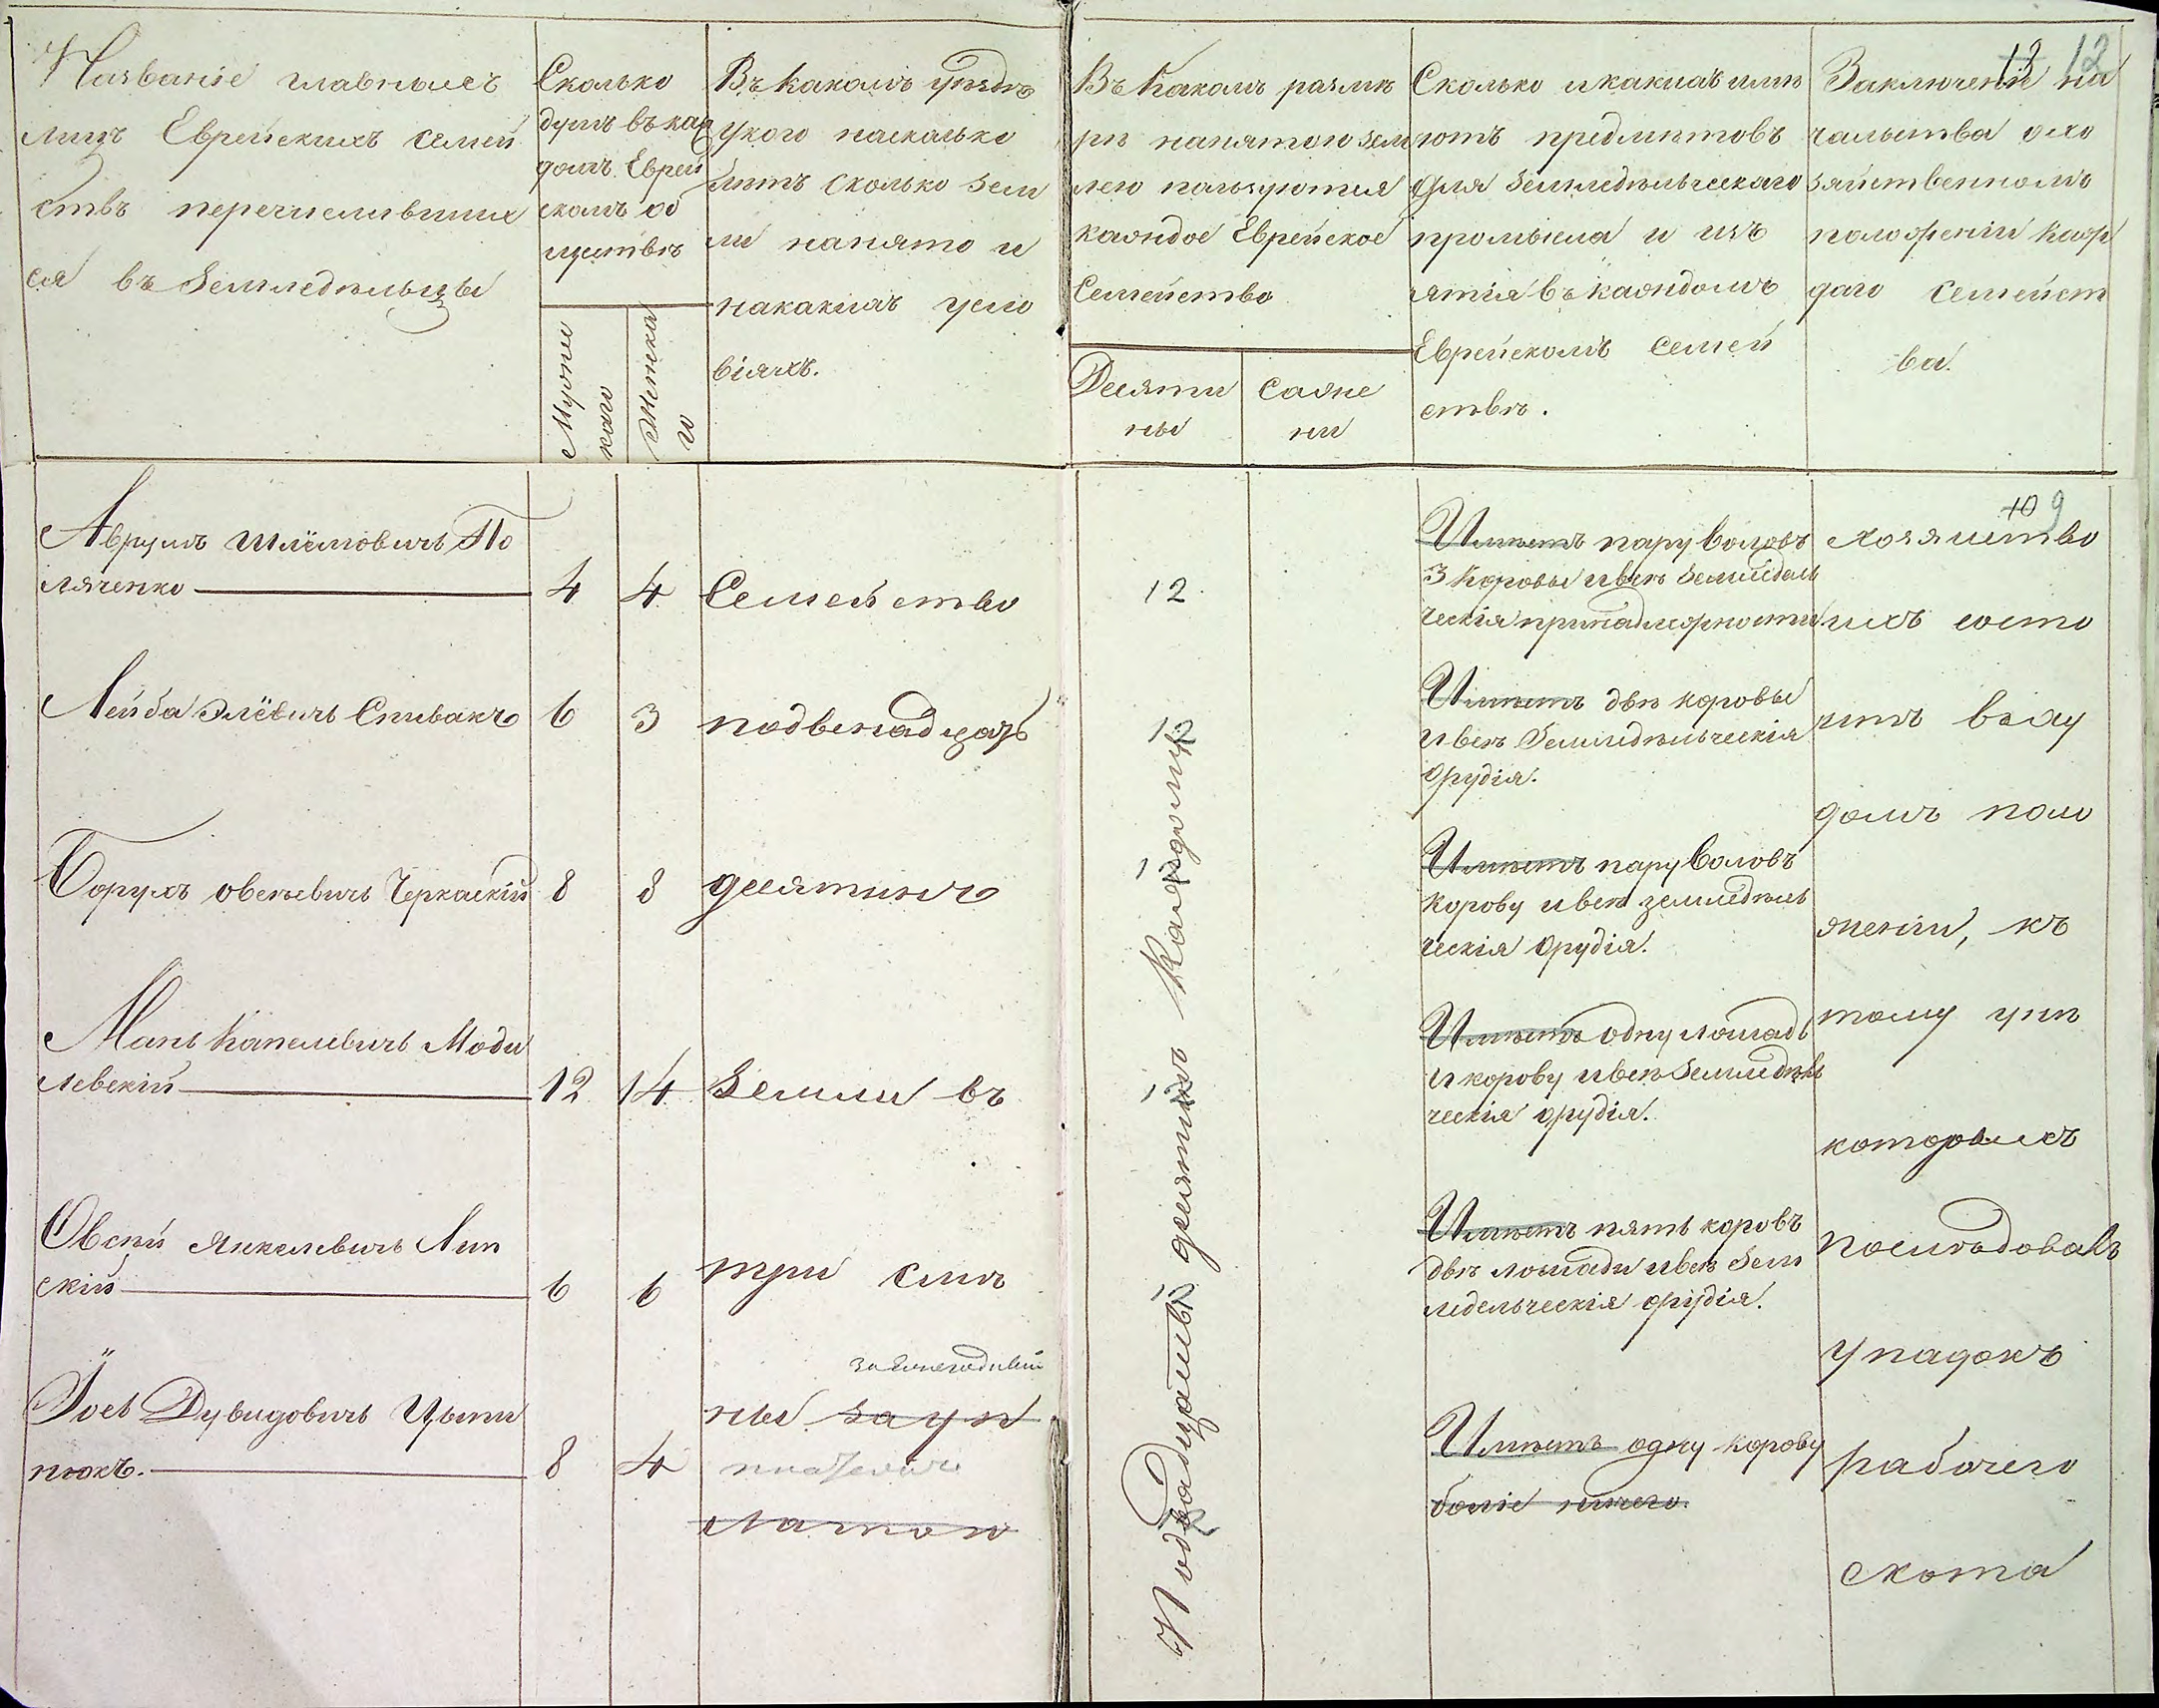 Названіе главныхъ
лицъ Еврейскихъ семей
ствъ перечисливших
ся въ Земледѣльцы
Сколько
душъ въ каж
домъ Еврей
скомъ об
ществѣ
Мужес
каго
Женска
го
Въ какомъ уѣздѣ
у кого насколько
лѣтъ сколько зем
ли нанято и
на какихъ усло
віяхъ.
Въ какомъ размѣ
рѣ нанятою зем
лею пользуются
каждое Еврейское
Семейство
Десяти
ны
Саже
ни
Сколько и какихъ имѣ
ютъ предмѣтовъ
для земледѣльческаго
промысла и из
ятія въ каждомъ
Еврейскомъ Семей
ствѣ.
12 12
Заключеніе на
чальства о хо
зяйственномъ
положеніи каж
даго Семейст
ва.
Аврумъ Шлёмовичъ По
ляченко
4 4 Семейство
12
Имѣетъ пару воловъ
3 коровы и всѣ земледель
ческія принадлежности
10 9
хозяйство
ихъ состо
Лейба Элёвичъ Спивакъ 6 3 подвенадцать
12
Имѣетъ двѣ коровы
и всѣ Земледѣльческія
орудія.
итъ въ ху
домъ поло
Борухъ Овсѣевичъ Черкаскій 8 8 десятинъ
Имѣетъ пару воловъ
корову и всѣ земледѣль
ческія орудія.
женіи, къ
Мань Капелевичъ Моги
левскій
12 14 Земли въ
12
Имѣетъ одну лошадь
и корову и всѣ Земледѣль
ческія орудія.
тому унѣ
которыхъ
Овсѣй Янкелевичъ Лип
скій
6 6 три См
12
Имѣетъ пять коровъ
двѣ лошади и всѣ Зем
ледельческія орудія.
послѣдовалъ
упадокъ
Іось Дувидовичъ Цыти
нюкъ.
8 4
за ежегодный
ны за уп
латою
12
Имѣетъ одну корову
боліе ничего.
рабочего
скота
Подвадцать десятинъ каждому